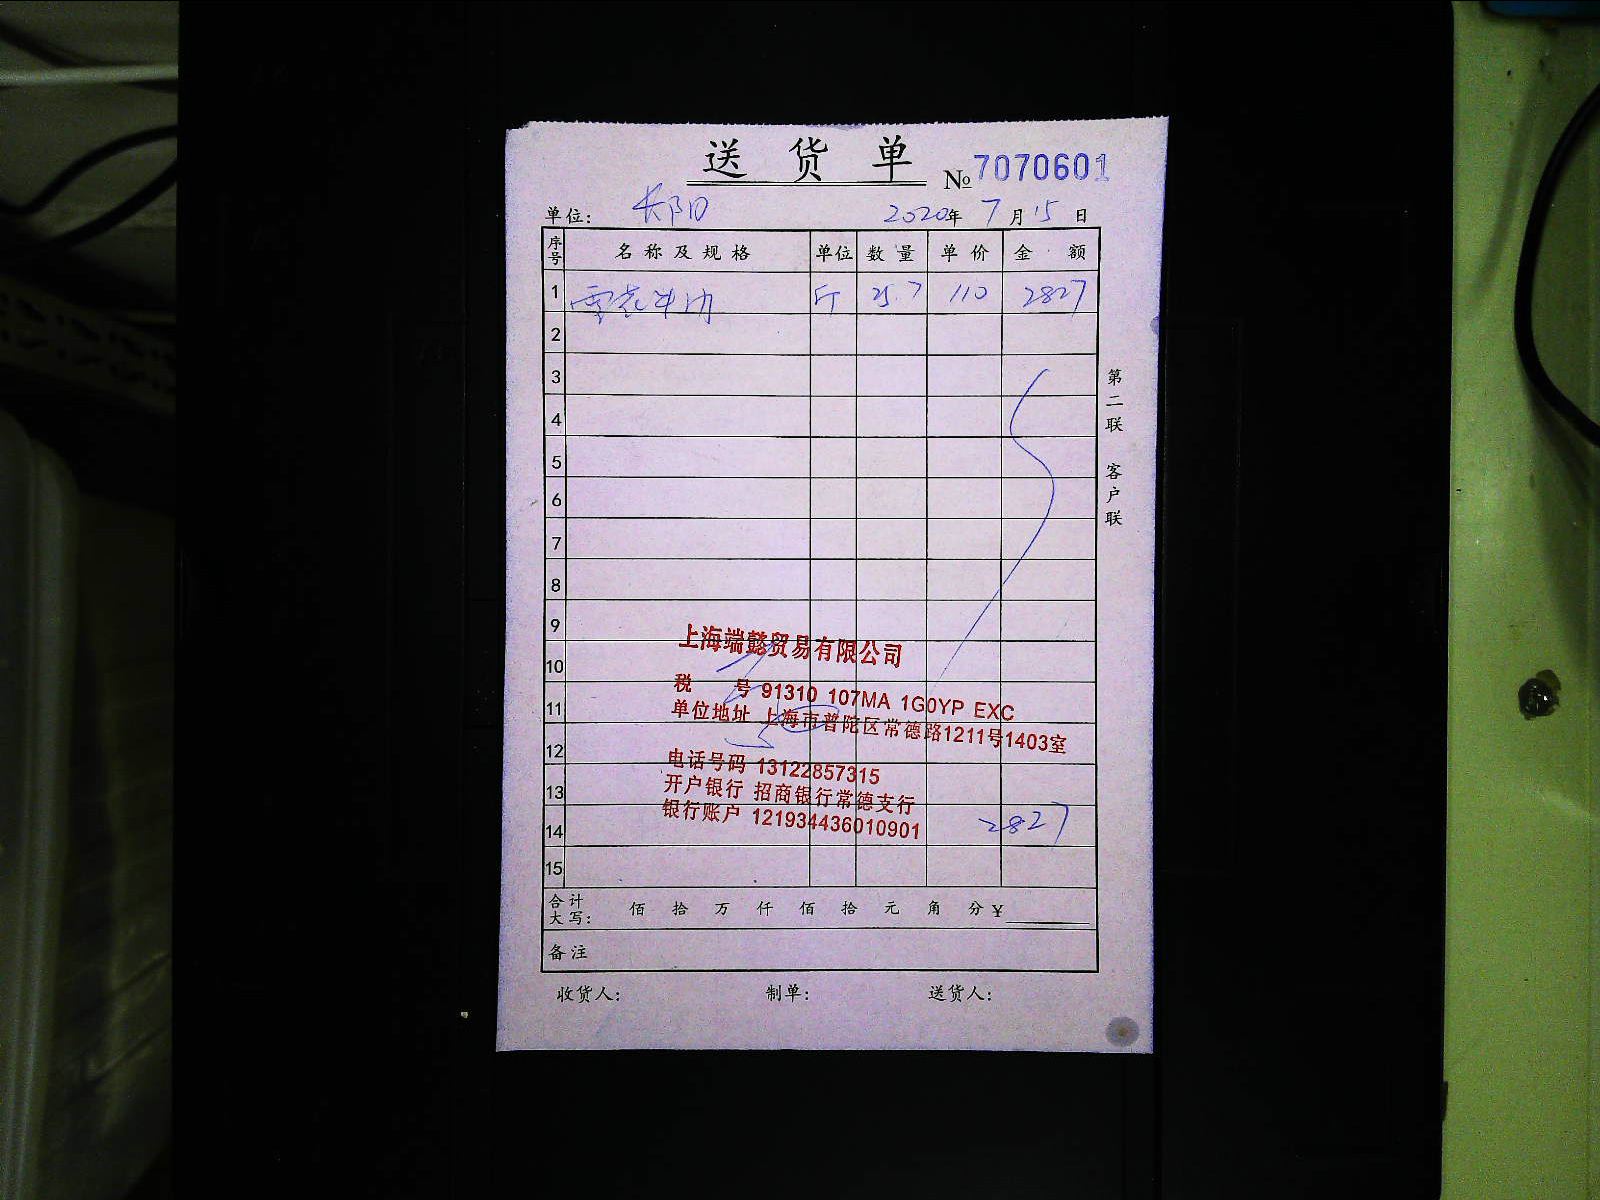 送货单
№7070601
单位: 长阳
2020年 7月 15日
序号 名称及规格 单位 数量 单价 金额
1 雪花牛肉 斤 25.7 110 2827
2
3
4
5
6
7
8
9
10
11
12
13
14 2827
15
上海端懿贸易有限公司
税 号 91310 107MA 1G0YP EXC
单位地址 上海市普陀区常德路1211号1403室
电话号码 13122857315
开户银行 招商银行常德支行
银行账户 121934436010901
合计大写: 佰 拾 万 仟 佰 拾 元 角 分 ¥
备注
收货人: 制单: 送货人:
第二联 客户联